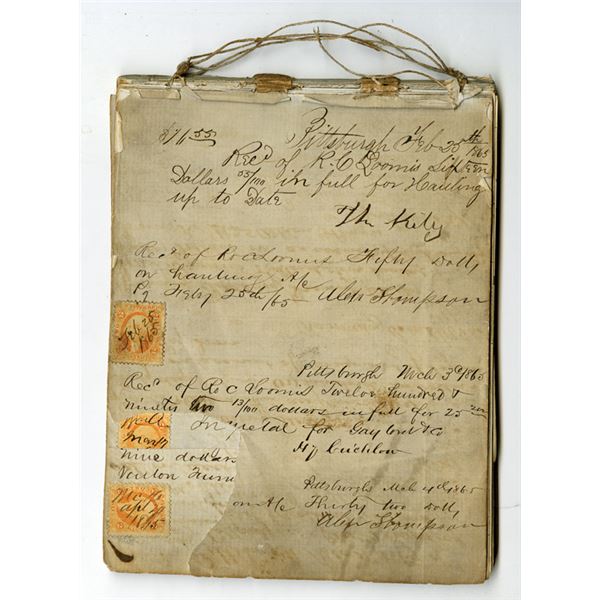 Pittsburgh Feb 25th 1865
Rec'd of R. C. Loomis Sixteen
Dollars 55/100 in full for Hauling
up to Date
Rec'd of R. C. Loomis Fifty Dolls
on hauling A/c
Feby 25th/65 Alex Thompson
Feb 25
1865
Pittsburgh Mch 3d 1865
Rec'd of R. C. Loomis Twelve hundred &
ninety two 13/100 dollars in full for 25
metal for Gaylord & Co
nine dollars
Pittsburgh Mch 4th 1865
on A/c Thirty two Dolls
Alex Thompson
1865